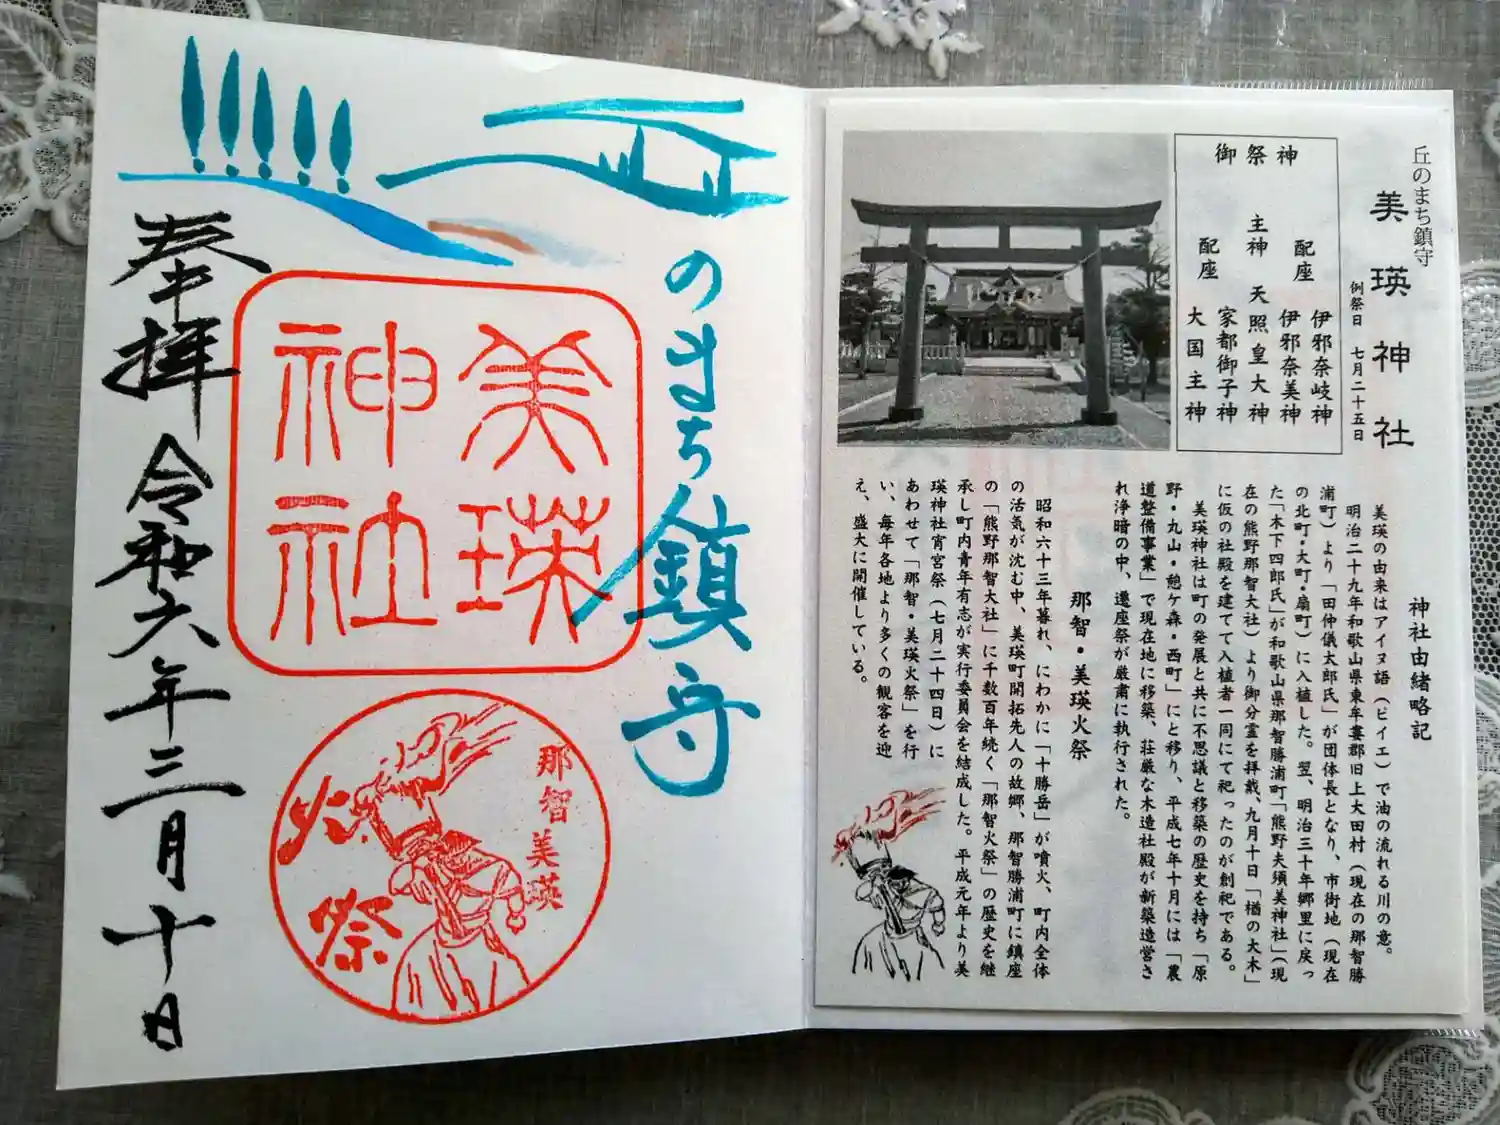 丘のまち鎮守
美瑛神社
那智美瑛
火祭
奉拝
令和六年三月十日
丘のまち鎮守
美瑛神社
例祭日 七月二十五日
御祭神
配座 伊邪奈岐神
伊邪奈美神
主神 天照皇大神
配座 家都御子神
大国主神
神社由緒略記
美瑛の由来はアイヌ語(ピイエ)で油の流れる川の意。
明治二十九年和歌山県東牟婁郡旧上大田村(現在の那智勝
浦町)より「田仲儀太郎氏」が団体長となり、市街地(現在
の北町・大町・扇町)に入植した。翌、明治三十年郷里に戻っ
た「木下四郎氏」が和歌山県那智勝浦町「熊野夫須美神社」(現
在の熊野那智大社)より御分霊を拝戴、九月十日「楢の大木」
に仮の社殿を建てて入植者一同にて祀ったのが創祀である。
美瑛神社は町の発展と共に不思議と移築の歴史を持ち「原
野・丸山・憩ケ森・西町」にと移り、平成七年十月には「農
道整備事業」で現在地に移築、荘厳な木造社殿が新築造営さ
れ浄暗の中、遷座祭が厳粛に執行された。
那智・美瑛火祭
昭和六十三年暮れ、にわかに「十勝岳」が噴火、町内全体
の活気が沈む中、美瑛町開拓先人の故郷、那智勝浦町に鎮座
の「熊野那智大社」に千数百年続く「那智火祭」の歴史を継
承し町内青年有志が実行委員会を結成した。平成元年より美
瑛神社宵宮祭(七月二十四日)に
あわせて「那智・美瑛火祭」を行
い、毎年各地より多くの観客を迎
え、盛大に開催している。